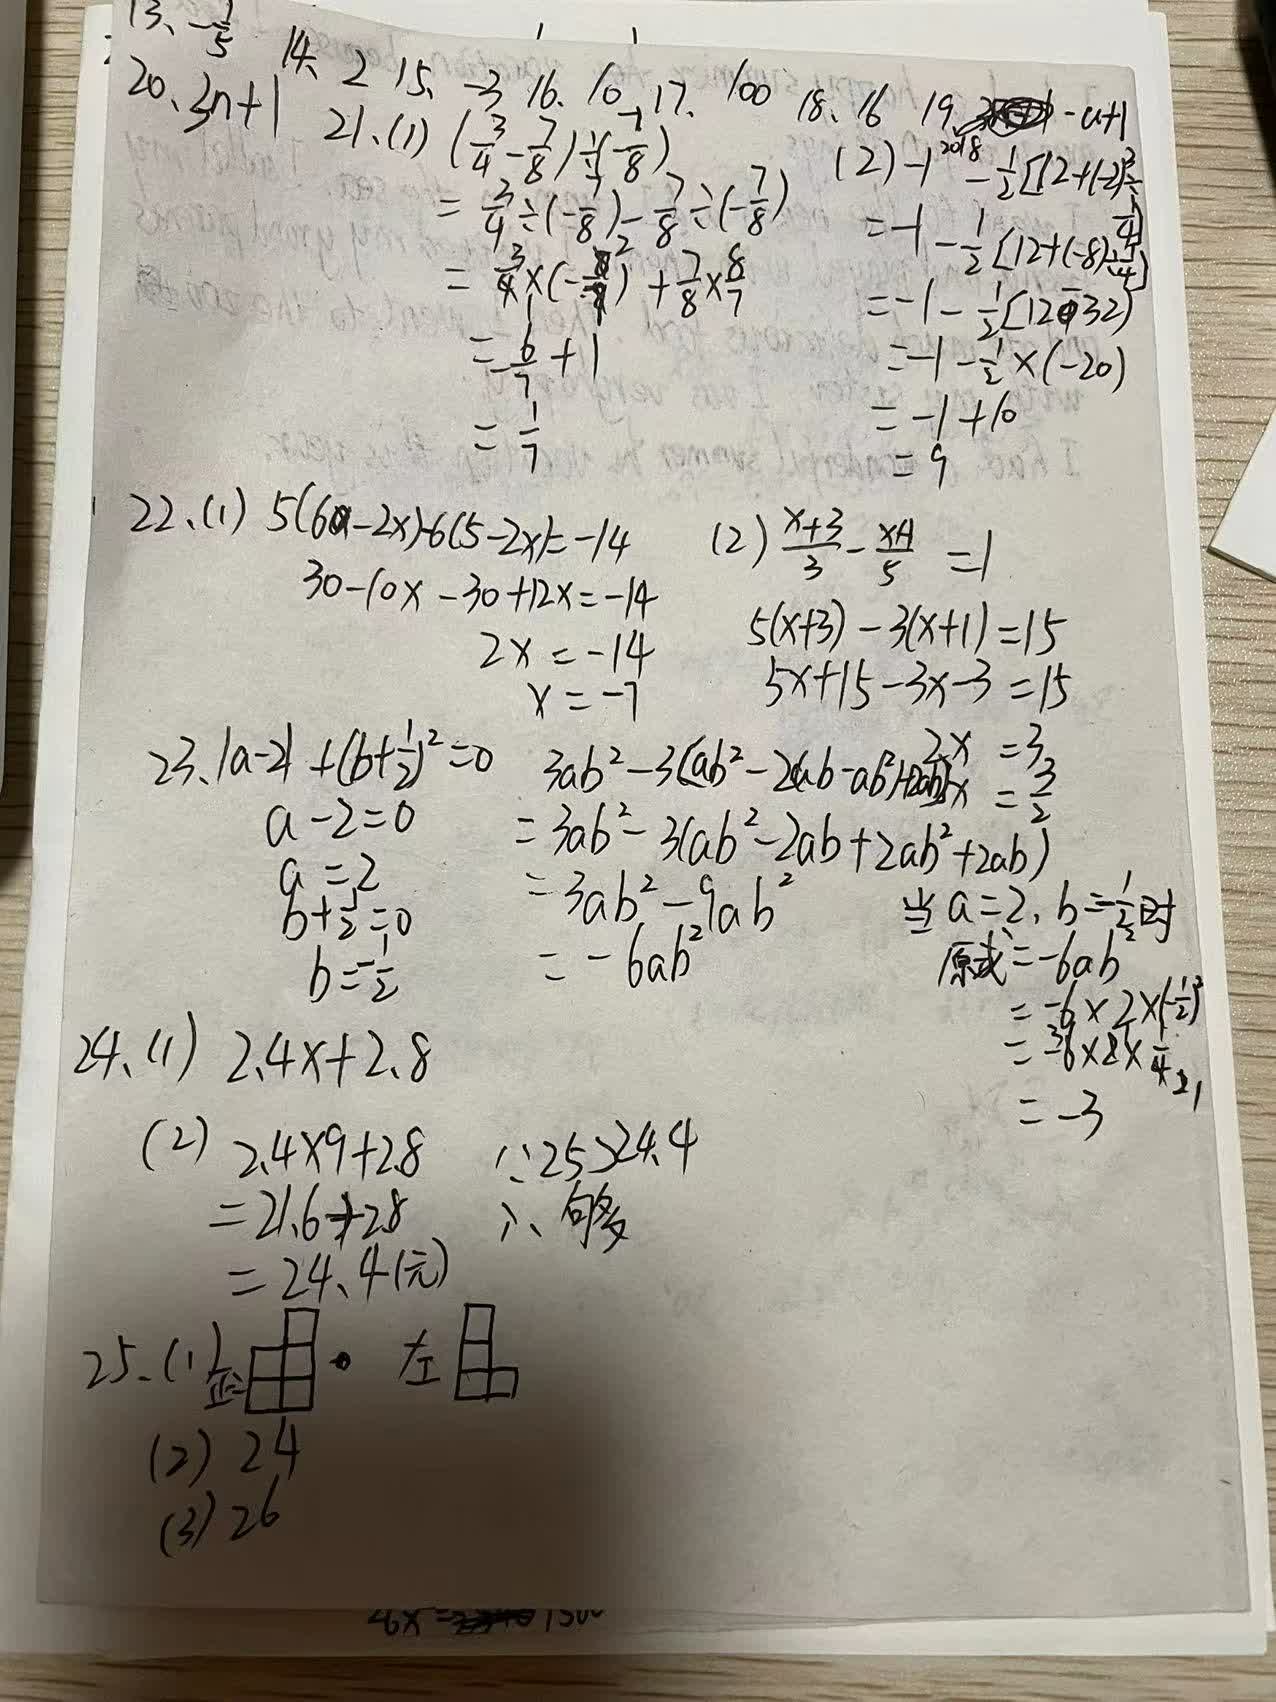 13、-1/5 14、2 15、-3 16、10 17、100 18、16 19、-a+1
20、3n+1
21、(1) (3/4-7/8)÷(-7/8)
=3/4÷(-7/8)-7/8÷(-7/8)
=3/4×(-8/7)+7/8×8/7
=-6/7+1
=1/7
(2) -1^2018-1/2[12+(-2)³÷1/4]
=-1-1/2[12+(-8)÷1/4]
=-1-1/2[12-32)
=-1-1/2×(-20)
=-1+10
=9
22、(1) 5(6-2x)-6(5-2x)=-14
30-10x-30+12x=-14
2x=-14
x=-7
(2) x+3/3-x+1/5=1
5(x+3)-3(x+1)=15
5x+15-3x-3=15
2x=3
x=3/2
23、|a-2|+(b+1/2)²=0
a-2=0
a=2
b+1/2=0
b=-1/2
3ab²-3[ab²-2(ab-ab²)+2ab]
=3ab²-3(ab²-2ab+2ab²+2ab)
=3ab²-9ab²
=-6ab²
当a=2、b=-1/2时
原式=-6ab²
=-6×2×(-1/2)²
=-6×2×1/4
=-3
24、(1) 2.4x+2.8
(2) 2.4×9+2.8
=21.6+2.8
=24.4(元)
∵25>24.4
∴够
25、(1) 正: 左
(2) 24
(3) 26